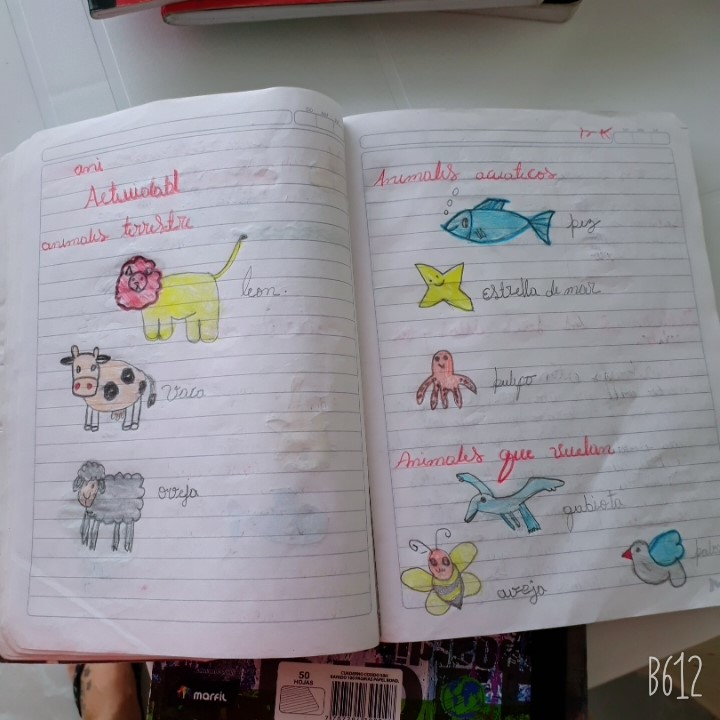 ani
animales terrestre
leon.
Vaca
oveja
Animales acuaticos
pez
estrella de mar
pulpo
Animales que vuelan
gabiota
aveja
50
HOJAS
marfil
B612